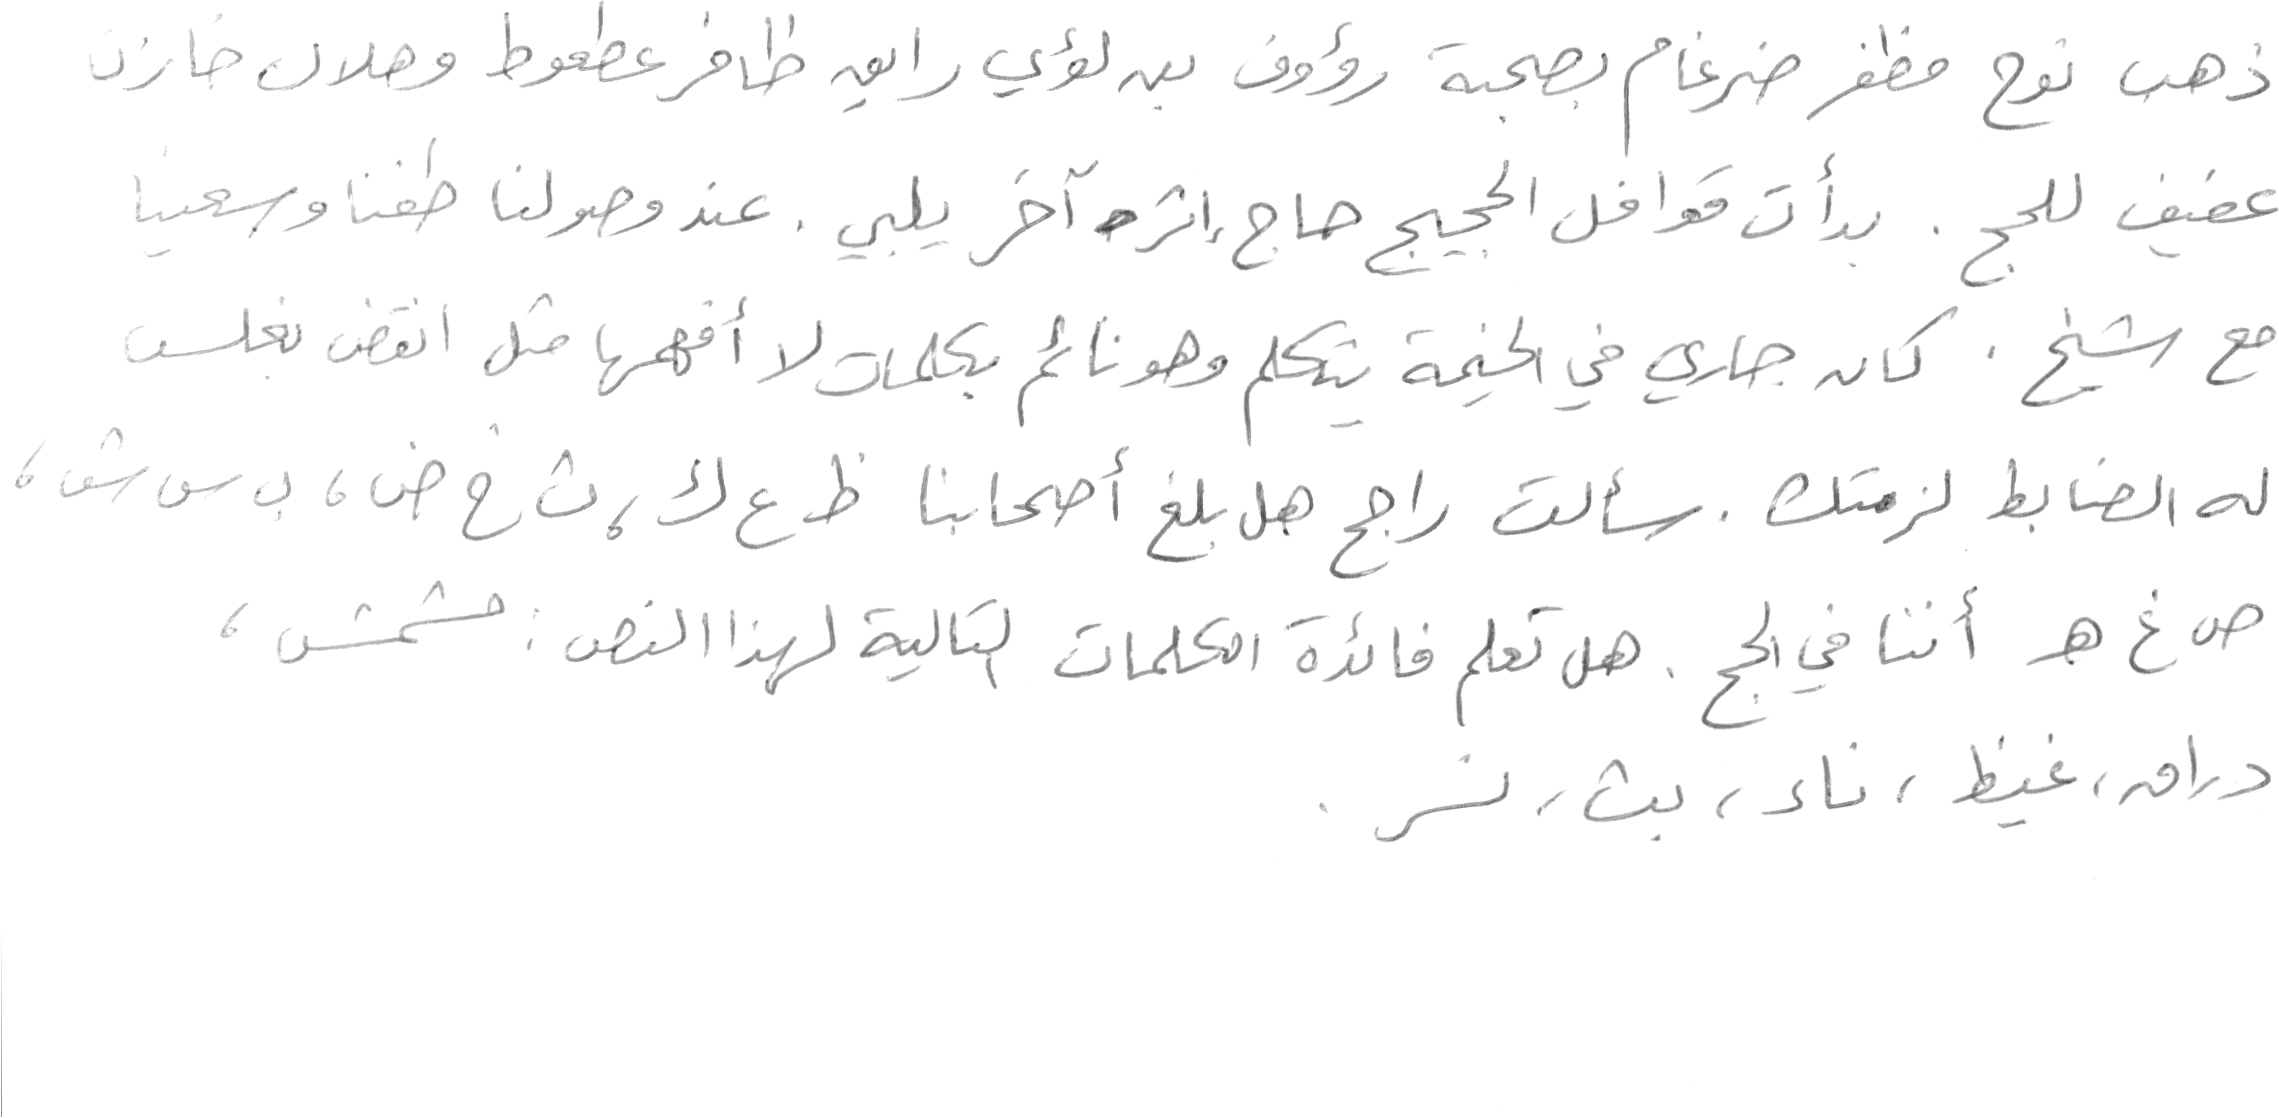 ذهب نوح مظفر ضرغام بصحبة رؤوف بن لؤي رائق ظافر عطعوط وهلال خازن
عفيف للحج . بدأت قوافل الحجيج حاج إثر آخر يلبي . عند وصولنا طفنا وسعينا
مع شيخ . كان جاري في الخيمة يتكلم وهو نائم بكلمات لا أفهمها مثل انقض بغلس
له الضابط لزمتك . سألت راجح هل بلغ أصحابنا ظ ع ك ، ث خ ض ، ب س ش ،
ص غ هـ أننا في الحج . هل تعلم فائدة الكلمات التالية لهذا النص : مشمش ،
دراق ، غيظ ، ناء ، بث ، نسر .